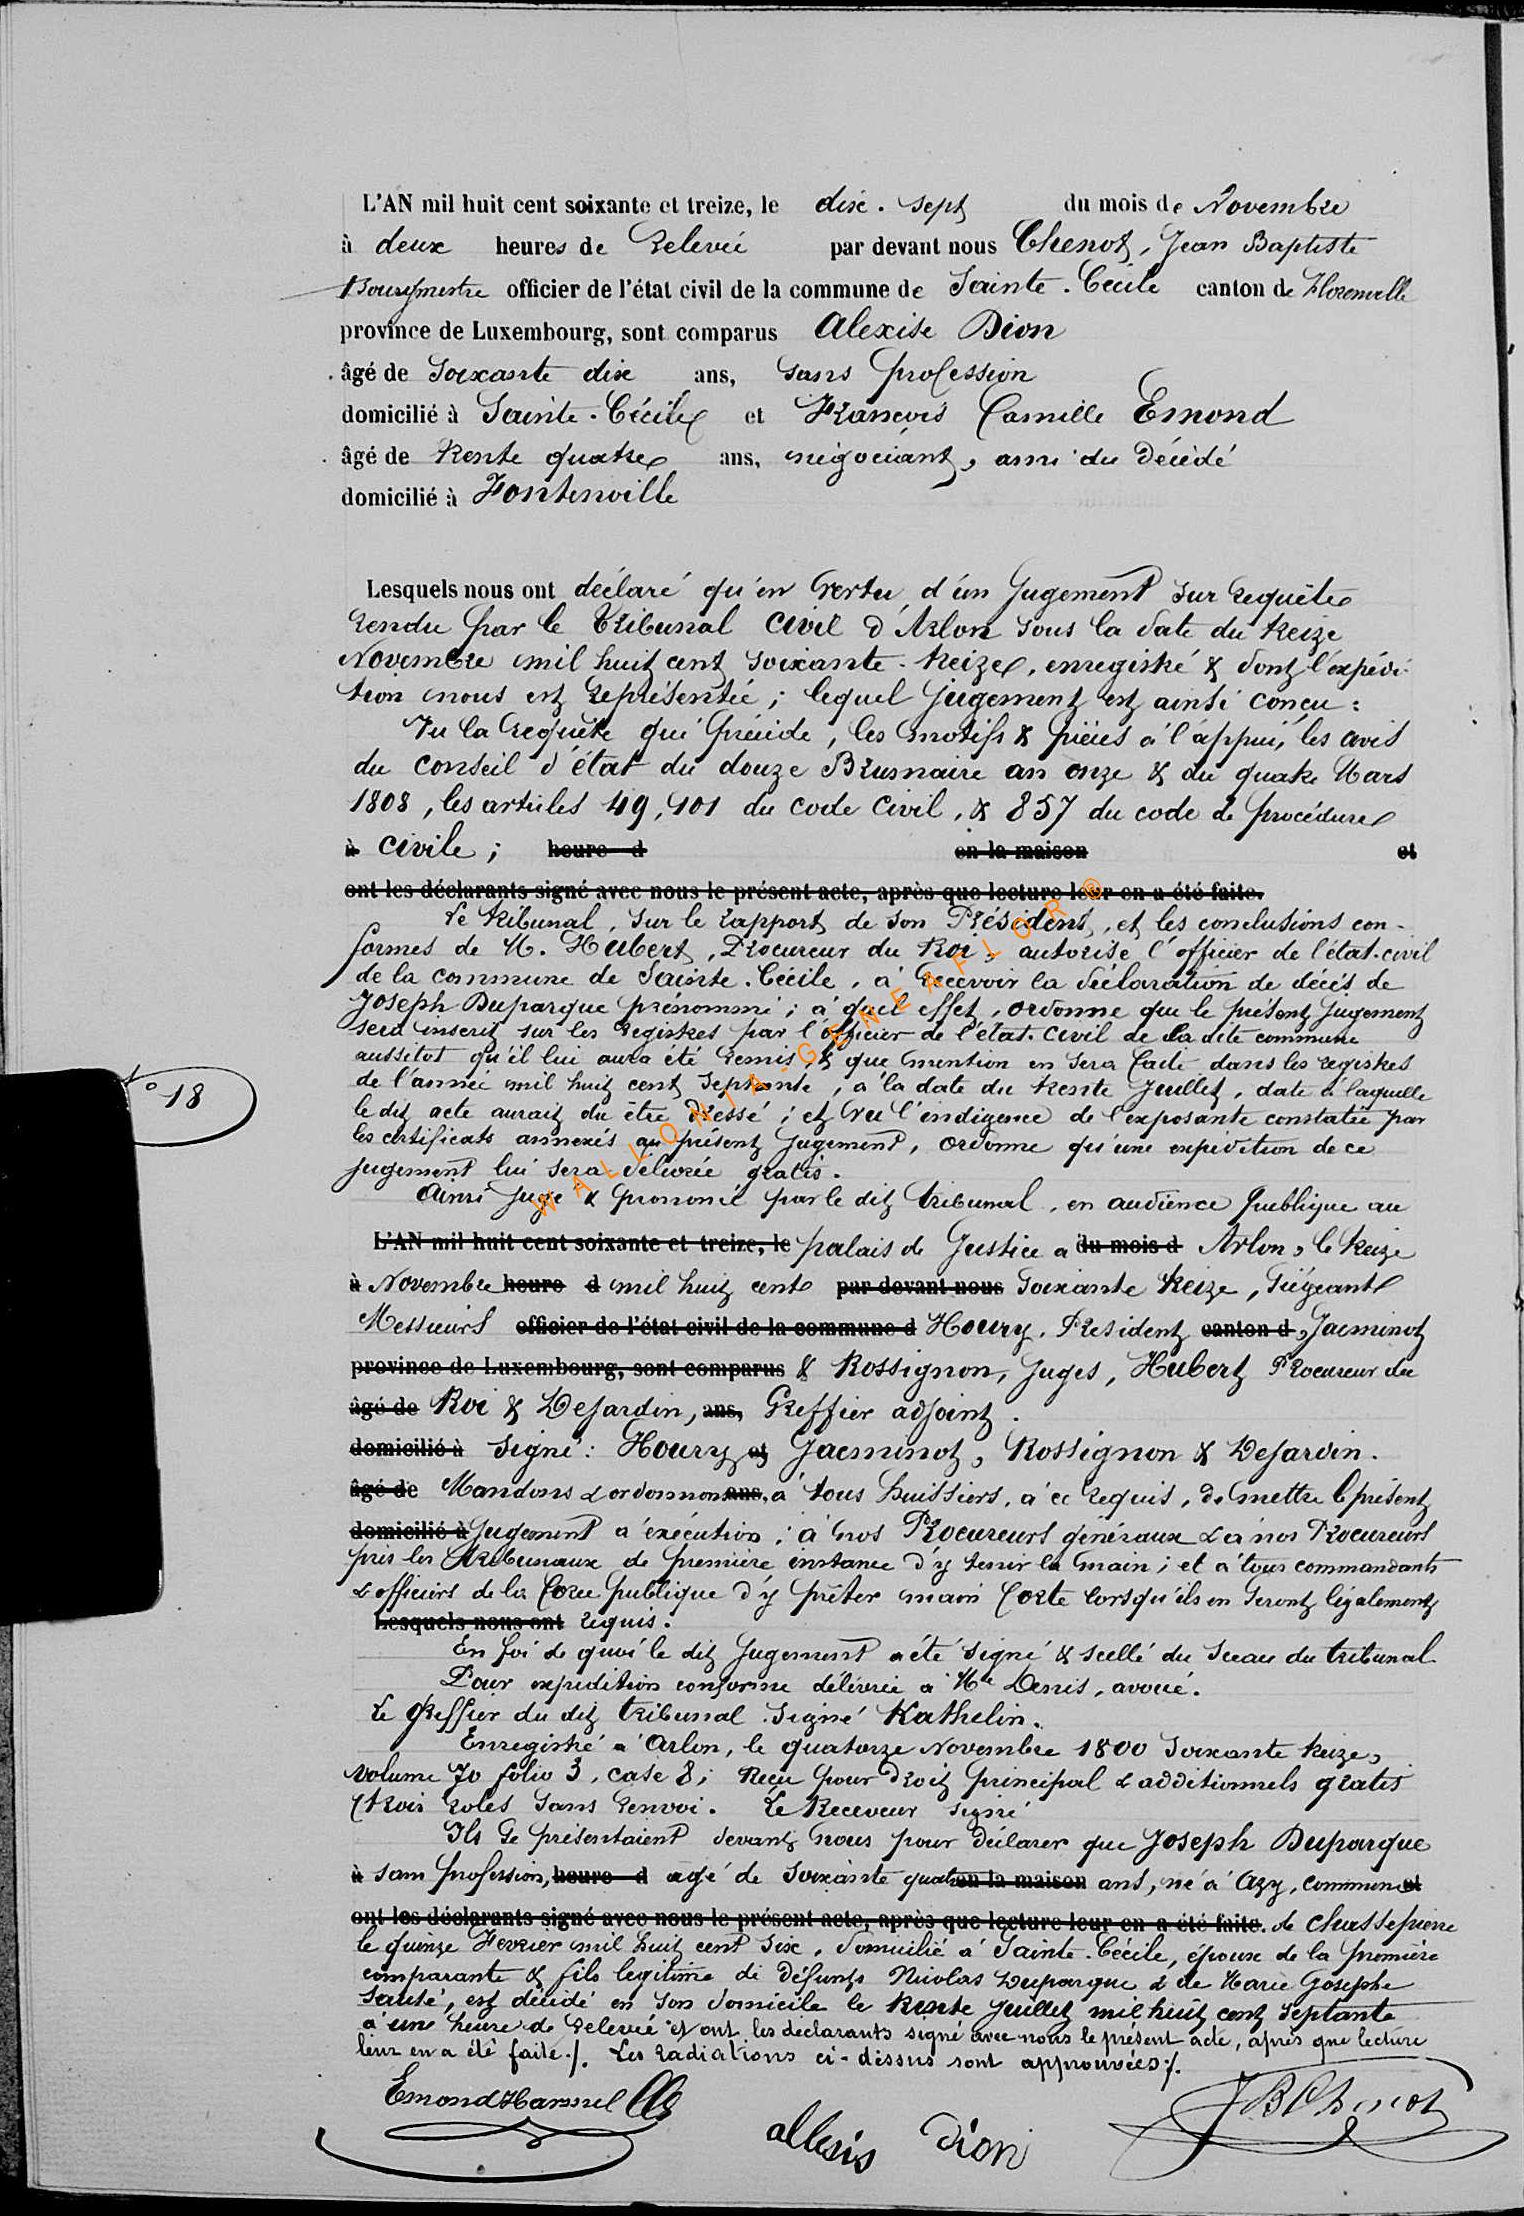 L'AN mil huit cent soixante et treize, le dix-sept du mois de Novembre
à deux heures de Relevée par devant nous Chenot, Jean Baptiste
Bourgmestre officier de l'état civil de la commune de Sainte-Cécile canton de Florenville
province de Luxembourg, sont comparus Alexise Dion
âgé de Soixante dix ans, sans profession
domicilié à Sainte-Cécile et François Camille Emond
âgé de trente quatre ans, négociant, ami du décédé
domicilié à Fontenoille
Lesquels nous ont déclaré qu'en vertu d'un Jugement sur requête
rendu par le Tribunal civil d'Arlon sous la date du treize
Novembre mil huit cent soixante-treize, enregistré & dont l'expédi-
tion nous est représentée; lequel jugement est ainsi conçu:
Vu la requête qui précède, les motifs & pièces à l'appui, les avis
du conseil d'état du douze Brumaire an onze & du quatre Mars
1808, les articles 49, 101 du code civil, & 857 du code de procédure
à civile; heure d en la maison et
ont les déclarants signé avec nous le présent acte, après que lecture leur en a été faite.
Le tribunal, sur le rapport de son Président, et les conclusions con-
formes de M. Hubert, Procureur du Roi, autorise l'officier de l'état-civil
de la commune de Sainte-Cécile, à recevoir la déclaration de décès de
Joseph Duparque prénommé; à quel effet, ordonne que le présent Jugement
sera inscrit sur les registres par l'officier de l'état-civil de la dite commune
aussitot qu'il lui aura été remis, & que mention en sera faite dans les registres
de l'année mil huit cent septante, à la date du trente Juillet, date à laquelle
N° 18
le dit acte aurait du être dressé; et vu l'indigence de l'exposante constatée par
les certificats annexés au présent Jugement, ordonne qu'une expédition de ce
jugement lui sera délivrée gratis.
Ainsi jugé & prononcé par le dit tribunal, en audience publique au
L'AN mil huit cent soixante et treize, le palais de Justice a du mois d Arlon, le treize
à Novembre heure d mil huit cent par devant nous soixante treize, siégeant
Messieurs officier de l'état civil de la commune d Houry, President, canton d Jacminot
province de Luxembourg, sont comparus & Rossignon, Juges, Hubert Procureur du
âgé de Roi & Dejardin, ans, Greffier adjoint.
domicilié à signé: Houry et Jacminot, Rossignon & Dejardin.
âgé de Mandons & ordonnons ans, à tous huissiers, à ce requis, de mettre le présent
domicilié à Jugement à exécution; à nos Procureurs généraux & à nos Procureurs
près les Tribunaux de première instance d'y tenir la main; et à tous commandants
& officiers de la force publique d'y prêter main forte lorsqu'ils en seront légalement
Lesquels nous ont requis.
En foi de quoi le dit Jugement a été signé & scellé du sceau du tribunal
Pour expédition conforme délivrée à Me Denis, avoué.
Le Greffier du dit tribunal signé Kathelin.
Enregistré à Arlon, le quatorze Novembre 1800 soixante treize,
volume 70 folio 3, case 8; Reçu pour droit principal & additionnels gratis
trois roles sans renvoi. Le Receveur signé
Ils se présentaient devant nous pour déclarer que Joseph Duparque
à sans profession, heure d agé de soixante quatre en la maison ans, né à Azy, commune et
ont les déclarants signé avec nous le présent acte, après que lecture leur en a été faite. de Chassepierre
le quinze Fevrier mil huit cent six, domicilié à Sainte-Cécile, époux de la première
comparante & fils légitime de défunts Nicolas Duparque & de Marie Josephe
Sauté, est décédé en son domicile le trente Juillet mil huit cent septante
à une heure de relevée et ont les déclarants signé avec nous le présent acte, après que lecture
leur en a été faite./. Les radiations ci-dessus sont approuvées/.
Emond Harmel
allexis Dion
JBChenot
WALLONIA-GENEAFLOR®